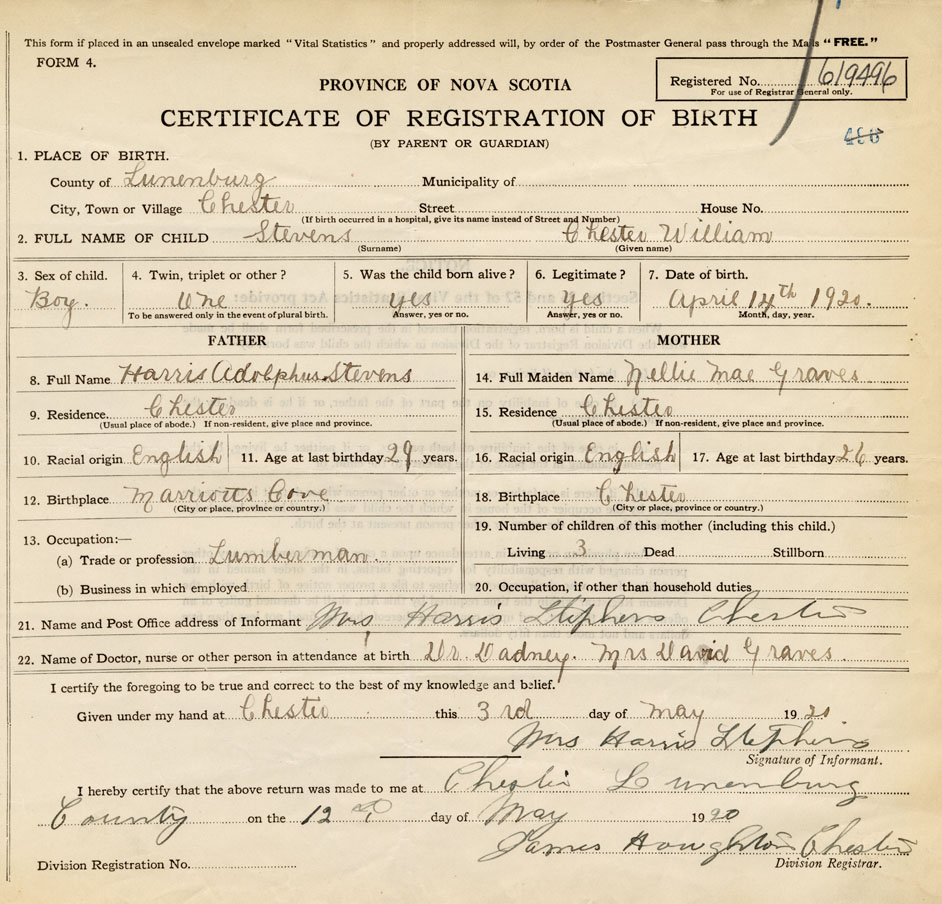 This form if placed in an unsealed envelope marked "Vital Statistics" and properly addressed will, by order of the Postmaster General pass through the Mails "FREE."
FORM 4.
Registered No. 619496
For use of Registrar General only.
PROVINCE OF NOVA SCOTIA
CERTIFICATE OF REGISTRATION OF BIRTH
(BY PARENT OR GUARDIAN)
1. PLACE OF BIRTH.
County of Lunenburg Municipality of
City, Town or Village Chester Street House No.
(If birth occurred in a hospital, give its name instead of Street and Number)
2. FULL NAME OF CHILD Stevens Chester William
(Surname) (Given name)
3. Sex of child. 4. Twin, triplet or other? 5. Was the child born alive? 6. Legitimate? 7. Date of birth.
Boy. One yes Yes April 14th 1920.
To be answered only in the event of plural birth. Answer, yes or no. Answer, yes or no. Month, day, year.
FATHER
8. Full Name Harris Adolphus Stevens
9. Residence. Chester
(Usual place of abode.) If non-resident, give place and province.
10. Racial origin English 11. Age at last birthday 29 years.
12. Birthplace Marriotts Cove
(City or place, province or country.)
13. Occupation:—
(a) Trade or profession Lumberman.
(b) Business in which employed
MOTHER
14. Full Maiden Name Nellie Mae Graves
15. Residence Chester
(Usual place of abode.) If non-resident, give place and province.
16. Racial origin English 17. Age at last birthday 26 years.
18. Birthplace Chester
(City or place, province or country.)
19. Number of children of this mother (including this child.)
Living 3 Dead Stillborn
20. Occupation, if other than household duties
21. Name and Post Office address of Informant Mrs Harris Stephens Chester
22. Name of Doctor, nurse or other person in attendance at birth Dr. Dadney. Mrs David Graves.
I certify the foregoing to be true and correct to the best of my knowledge and belief.
Given under my hand at Chester this 3rd day of May 1920.
Mrs Harris Stephens
Signature of Informant.
I hereby certify that the above return was made to me at Chester Lunenburg
County on the 12 day of May 1920
James Houghton Chester
Division Registrar.
Division Registration No.